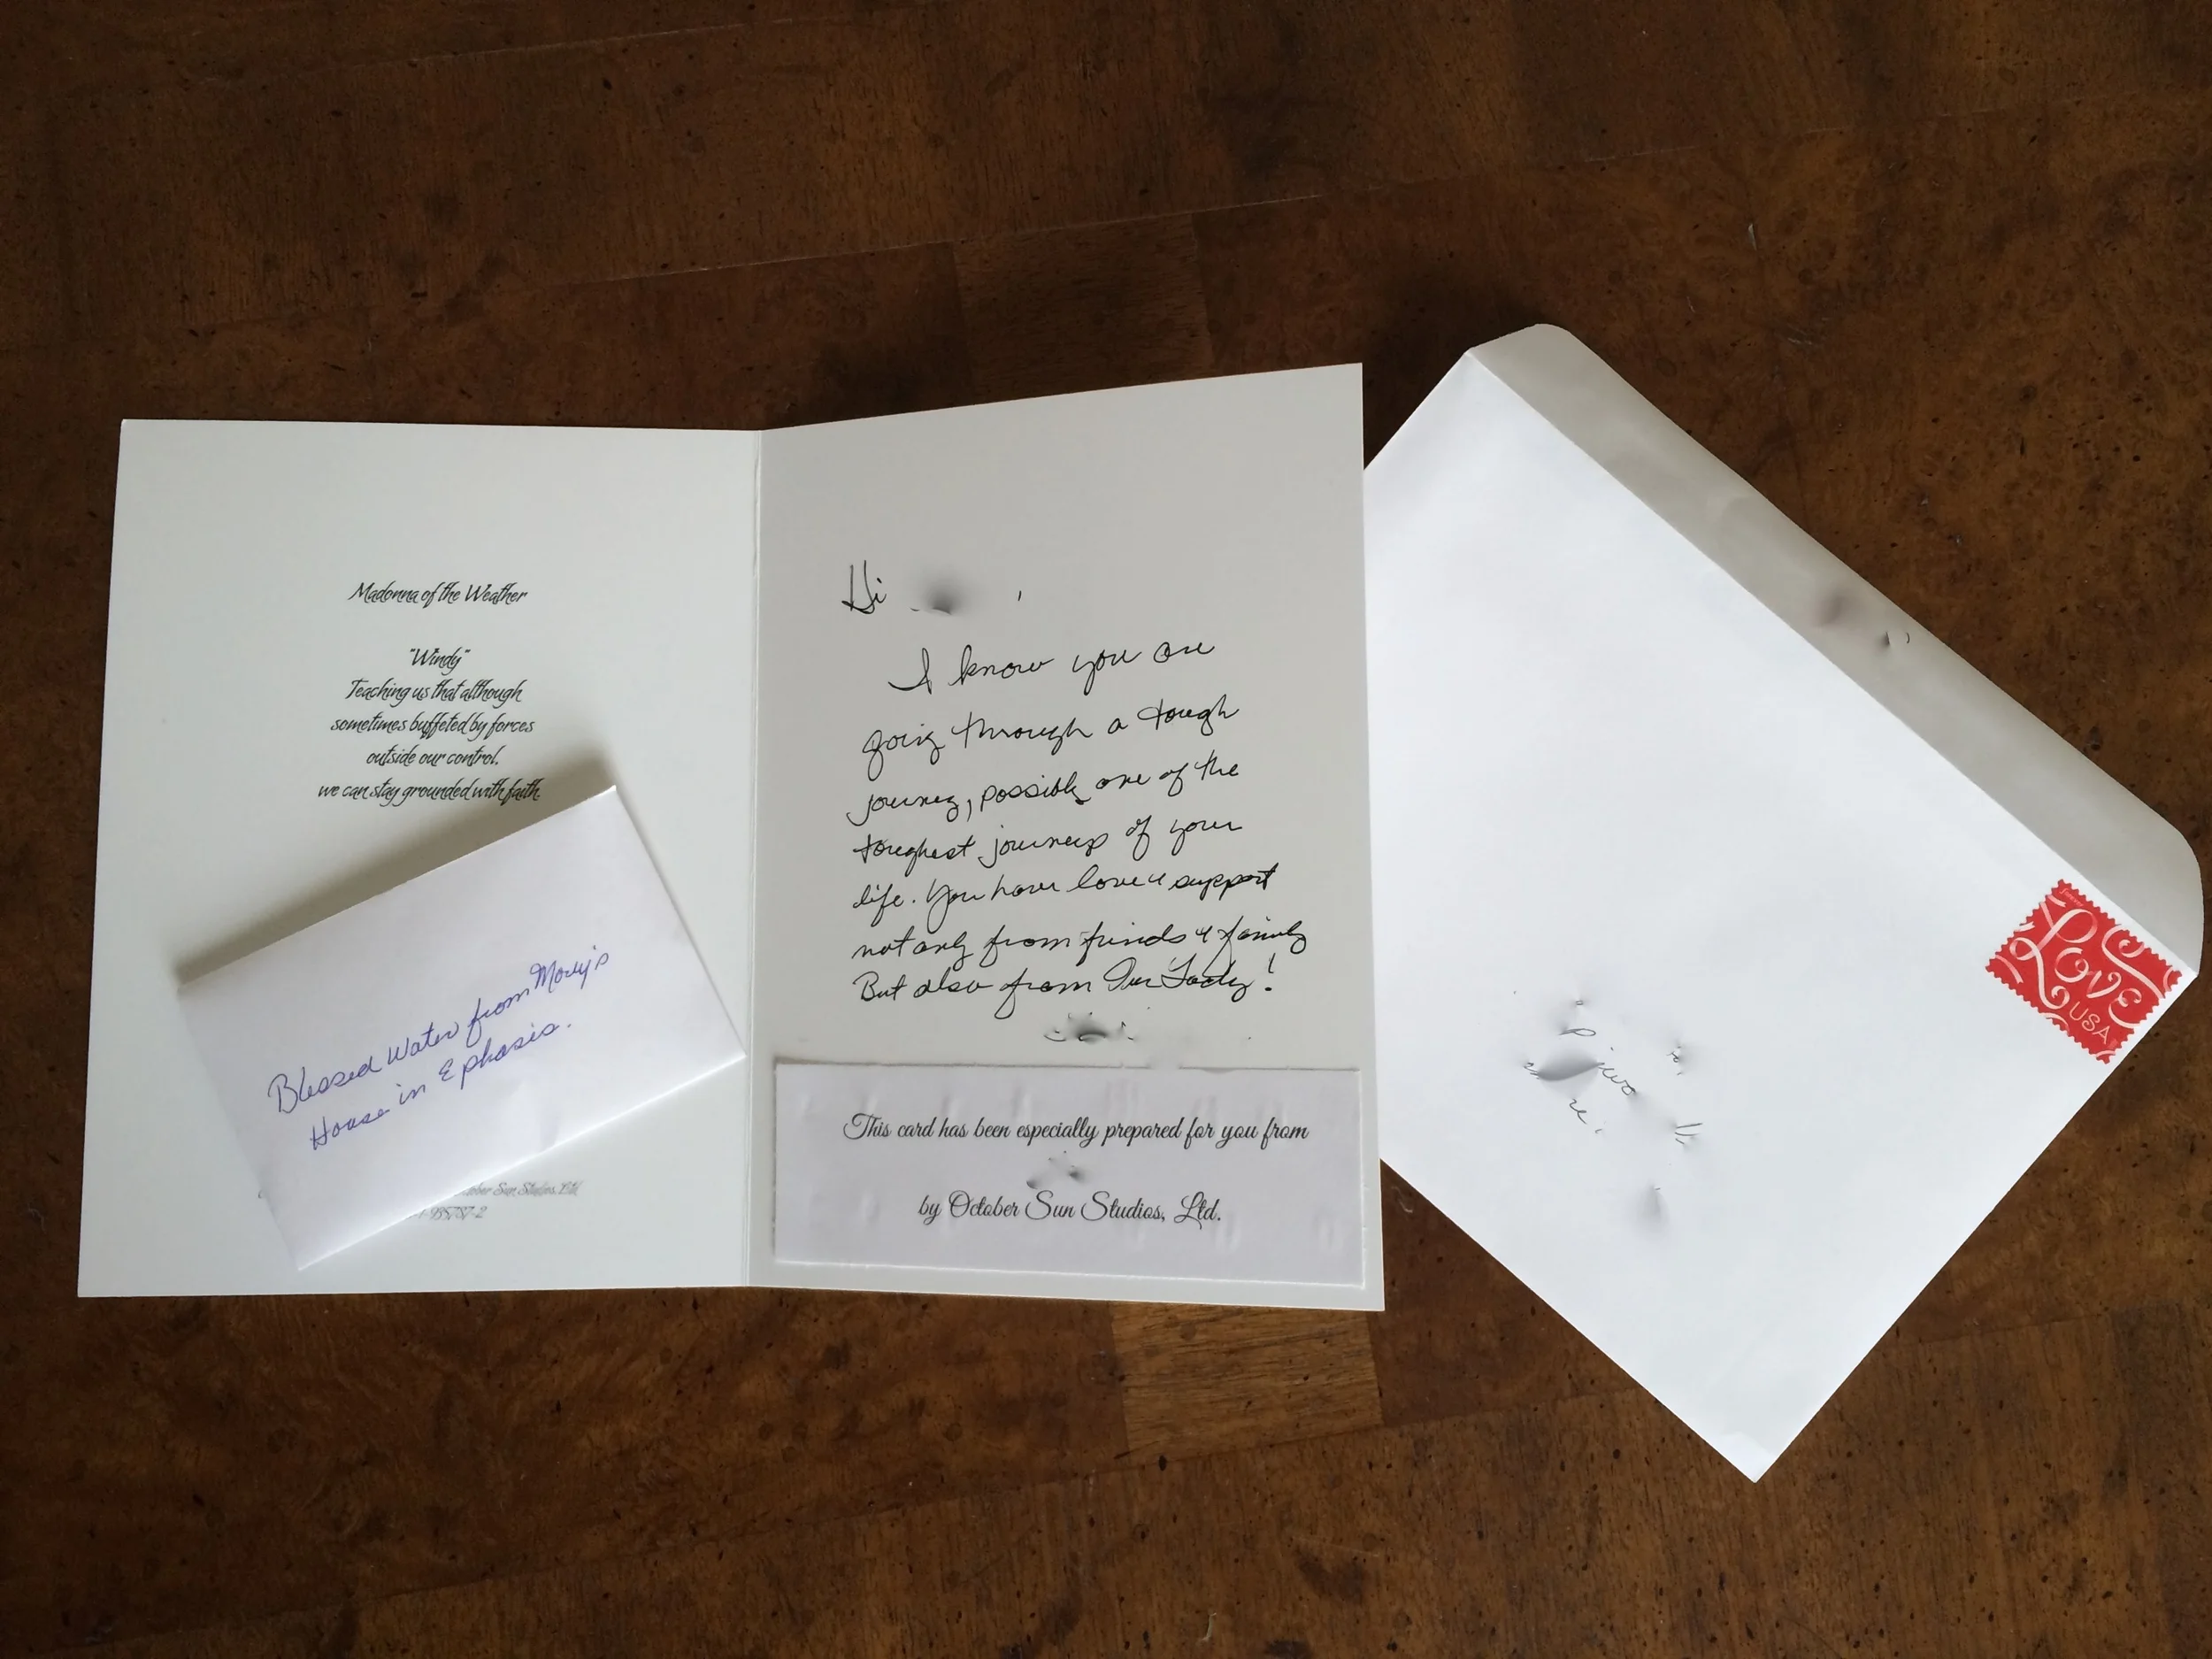 Madonna of the Weather
"Windy"
Teaching us that although
sometimes buffeted by forces
outside our control.
we can stay grounded with faith.
Blessed Water from Mary's
House in Ephasis.
Sun Studios, Ltd.
Hi
I know you are
going through a tough
journey, possibly one of the
toughest journeys of your
life. You have love & support
not only from friends & family
But also from Our Lady!
This card has been especially prepared for you from
by October Sun Studios, Ltd.
forever
LOVE
USA